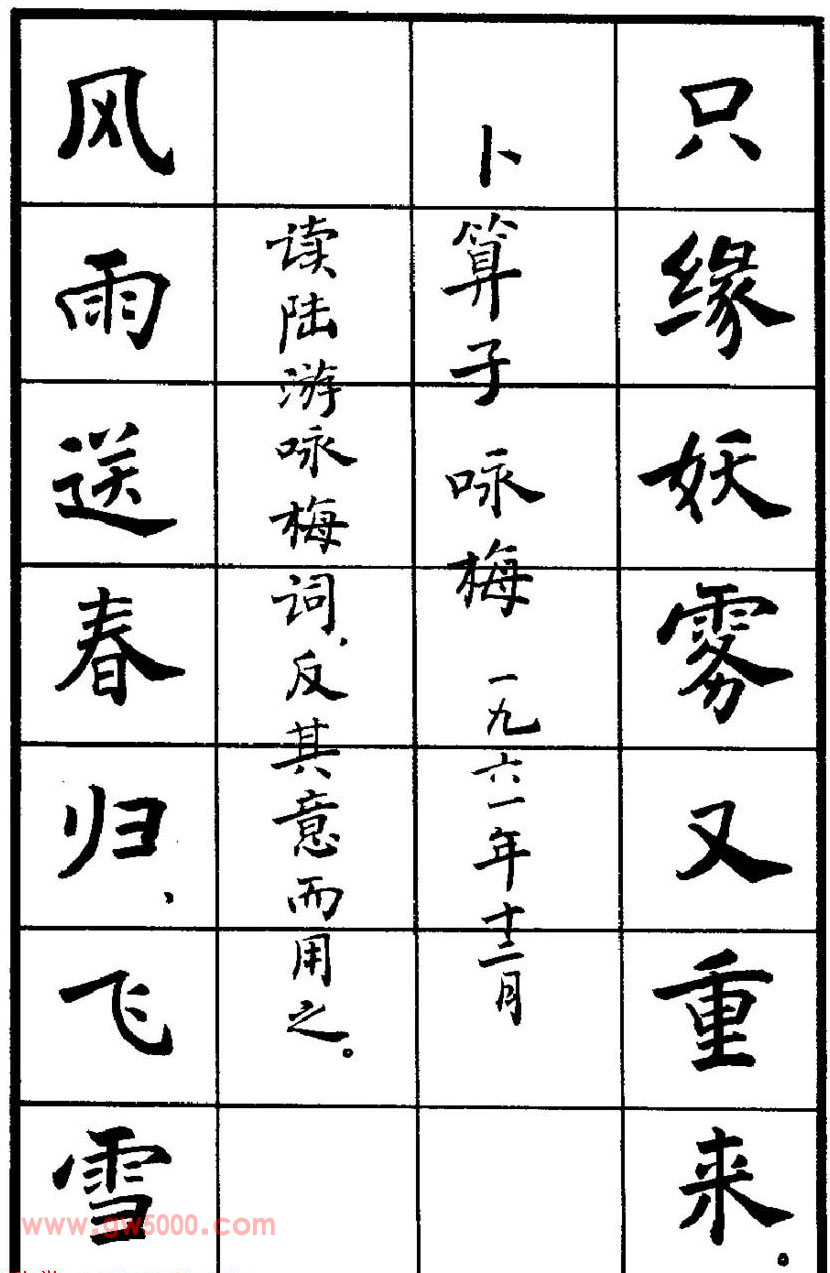 只缘妖雾又重来。
卜算子 咏梅 一九六一年十二月
读陆游咏梅词，反其意而用之。
风雨送春归，飞雪
www.gw5000.com